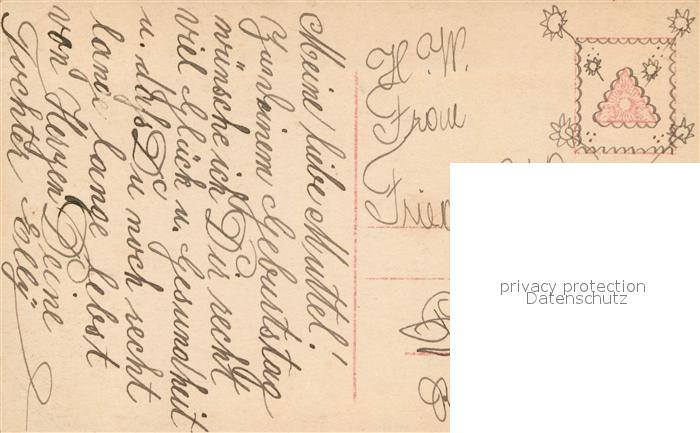 Meine liebe Muttel!
Zu Deinem Geburtstag
wünsche ich Dir recht
viel Glück u. Gesundheit
u. daß Du noch recht
lange lange lebst
von Herzen Deine
Tochter Elly
H. W.
Frau
privacy protection
Datenschutz